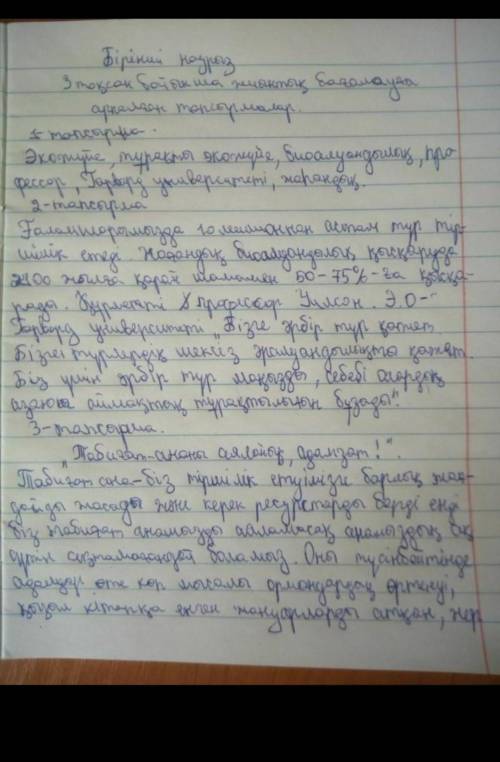 Бірінші наурыз
3 тоқсан бойынша жиынтық бағалауға
арналған тапсырмалар.
1-тапсырма.
Экожүйе, тұрақты экожүйе, биоалуандылық, про
фессор, Гарвард университеті, жаһандық.
2-тапсырма
Ғаламшарымызда 10 миллионнан астам түр тір-
шілік етеді. Жаһандық биоалуандылық қысқаруда
2100 жылға қарай шамамен 50-75%-ға қысқа
рады. Құрметті профессор Уилсон. Э.О-
Гарвард университеті "Бізге әрбір түр қажет
Бізге түрлердің шексіз әралуандылықта қажет.
Біз үшін әрбір түр маңызды, себебі олардың
азаюы аймақтың тұрақтылығын бұзады".
3-тапсырма.
"Табиғат-ананы аялайық, адамзат!".
Табиғат ана-біз тіршілік етуімізге барлық жағ
дайды жасады және керек ресурстарды берді енді
біз табиғат анамызды аяламасақ анамыздың ақ
сүтін боламыз. Оны түсінбейтінде
адамдар өте көп мысалы ормандардың өртенуі,
қызыл кітапқа енген жануарларды атқан, жер